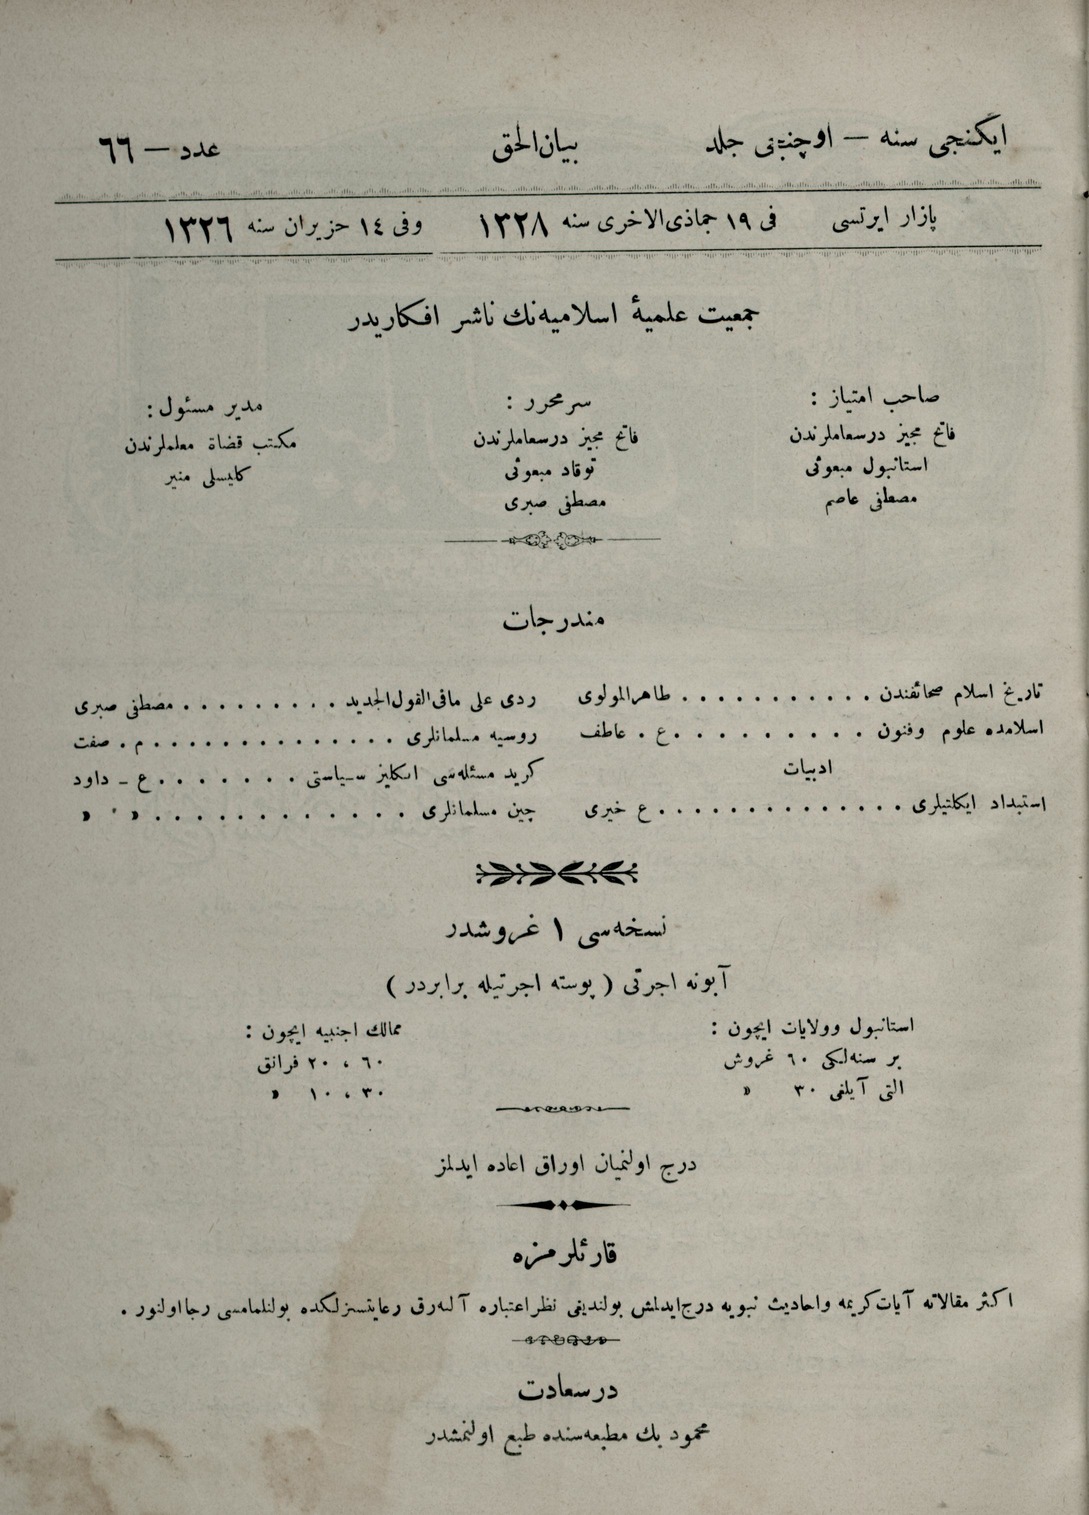 ایکنجی سنه — اوچنجی جلد
بیان‌الحق
عدد — ٦٦
پازار ایرتسی
فی ١٩ جماذی‌الاخری سنه ١٣٢٨
وفی ١٤ حزیران سنه ١٣٢٦
جمعیت علمیهٔ اسلامیه‌نك ناشر افكاریدر
صاحب امتیاز :
فاتح مجیز درسعاملرندن
استانبول مبعوثی
مصطفی عاصم
سرمحرر :
فاتح مجیز درسعاملرندن
توقاد مبعوثی
مصطفی صبری
مدیر مسئول :
مكتب قضاة معلملرندن
كلیسلی منیر
مندرجات
تاریخ اسلام صحائفندن . . . . . . . . . . . طاهرالمولوی
اسلامده علوم وفنون . . . . . . . . . . ع . عاطف
ادبیات
استبداد ایكلتیلری . . . . . . . . . . . . . ع خیری
ردی علی مافی‌القول‌الجدید . . . . . . . . . مصطفی صبری
روسیه مسلمانلری . . . . . . . . . . . . . م . صفت
كرید مسئله‌سی انكلیز سیاستی . . . . . . . ع ـ داود
چین مسلمانلری . . . . . . . . . . . . . » » »
نسخه‌سی ١ غروشدر
آبونه اجرتی ( پوسته اجرتیله برابردر )
استانبول وولایات ایچون :
بر سنه‌لكی ٦٠ غروش
التی آیلغی ٣٠ »
ممالك اجنبیه ایچون :
٦٠ ، ٢٠ فرانق
٣٠ ، ١٠ »
درج اولنمیان اوراق اعاده ایدلمز
قارئلرمزه
اكثر مقالاته آیات‌كریمه واحادیث نبویه درج‌ایدلمش بولندیغی نظراعتباره آلنه‌رق رعایتسزلكده بولنلمامسی رجااولنور .
درسعادت
محمود بك مطبعه‌سنده طبع اولنمشدر